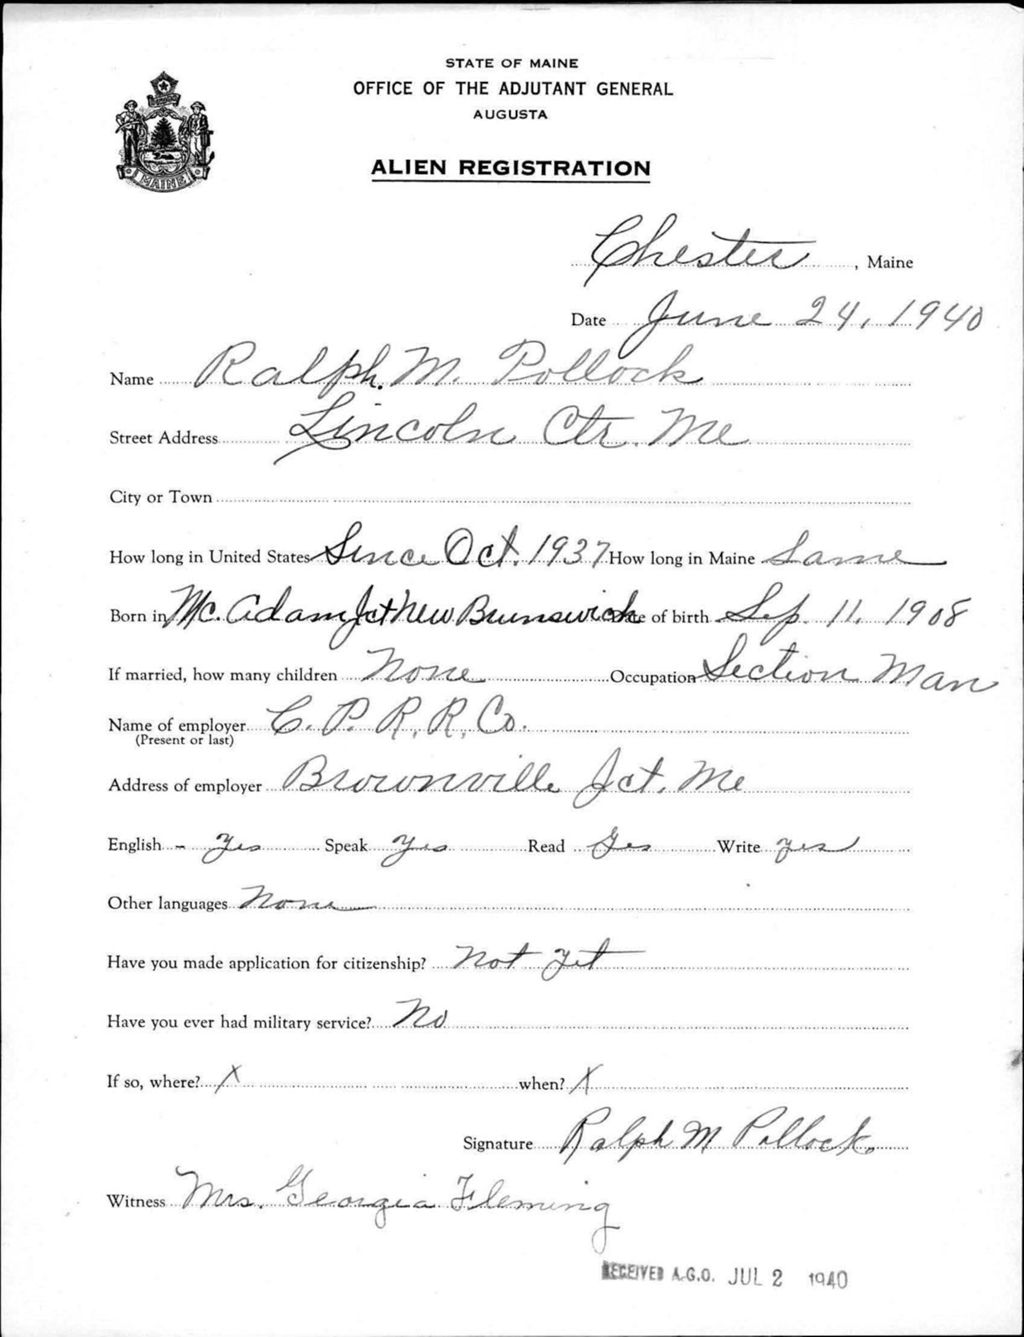 STATE OF MAINE
OFFICE OF THE ADJUTANT GENERAL
AUGUSTA
ALIEN REGISTRATION
MAINE
Chester, Maine
Date June 24, 1940
Name Ralph M. Pollock
Street Address Lincoln Ctr. Me
City or Town
How long in United States Since Oct. 1937 How long in Maine Same
Born in Mc. Adam Jct New Brunswick Date of birth Sep. 11, 1908
If married, how many children None Occupation Section Man
Name of employer C. P. R. R. Co.
(Present or last)
Address of employer Brownville Jct. Me
English - Yes Speak Yes Read Yes Write yes
Other languages None
Have you made application for citizenship? Not Yet
Have you ever had military service? No
If so, where? X when? X
Signature Ralph M Pollock.
Witness Mrs. Georgia Fleming
RECEIVED A.G.O. JUL 2 1940